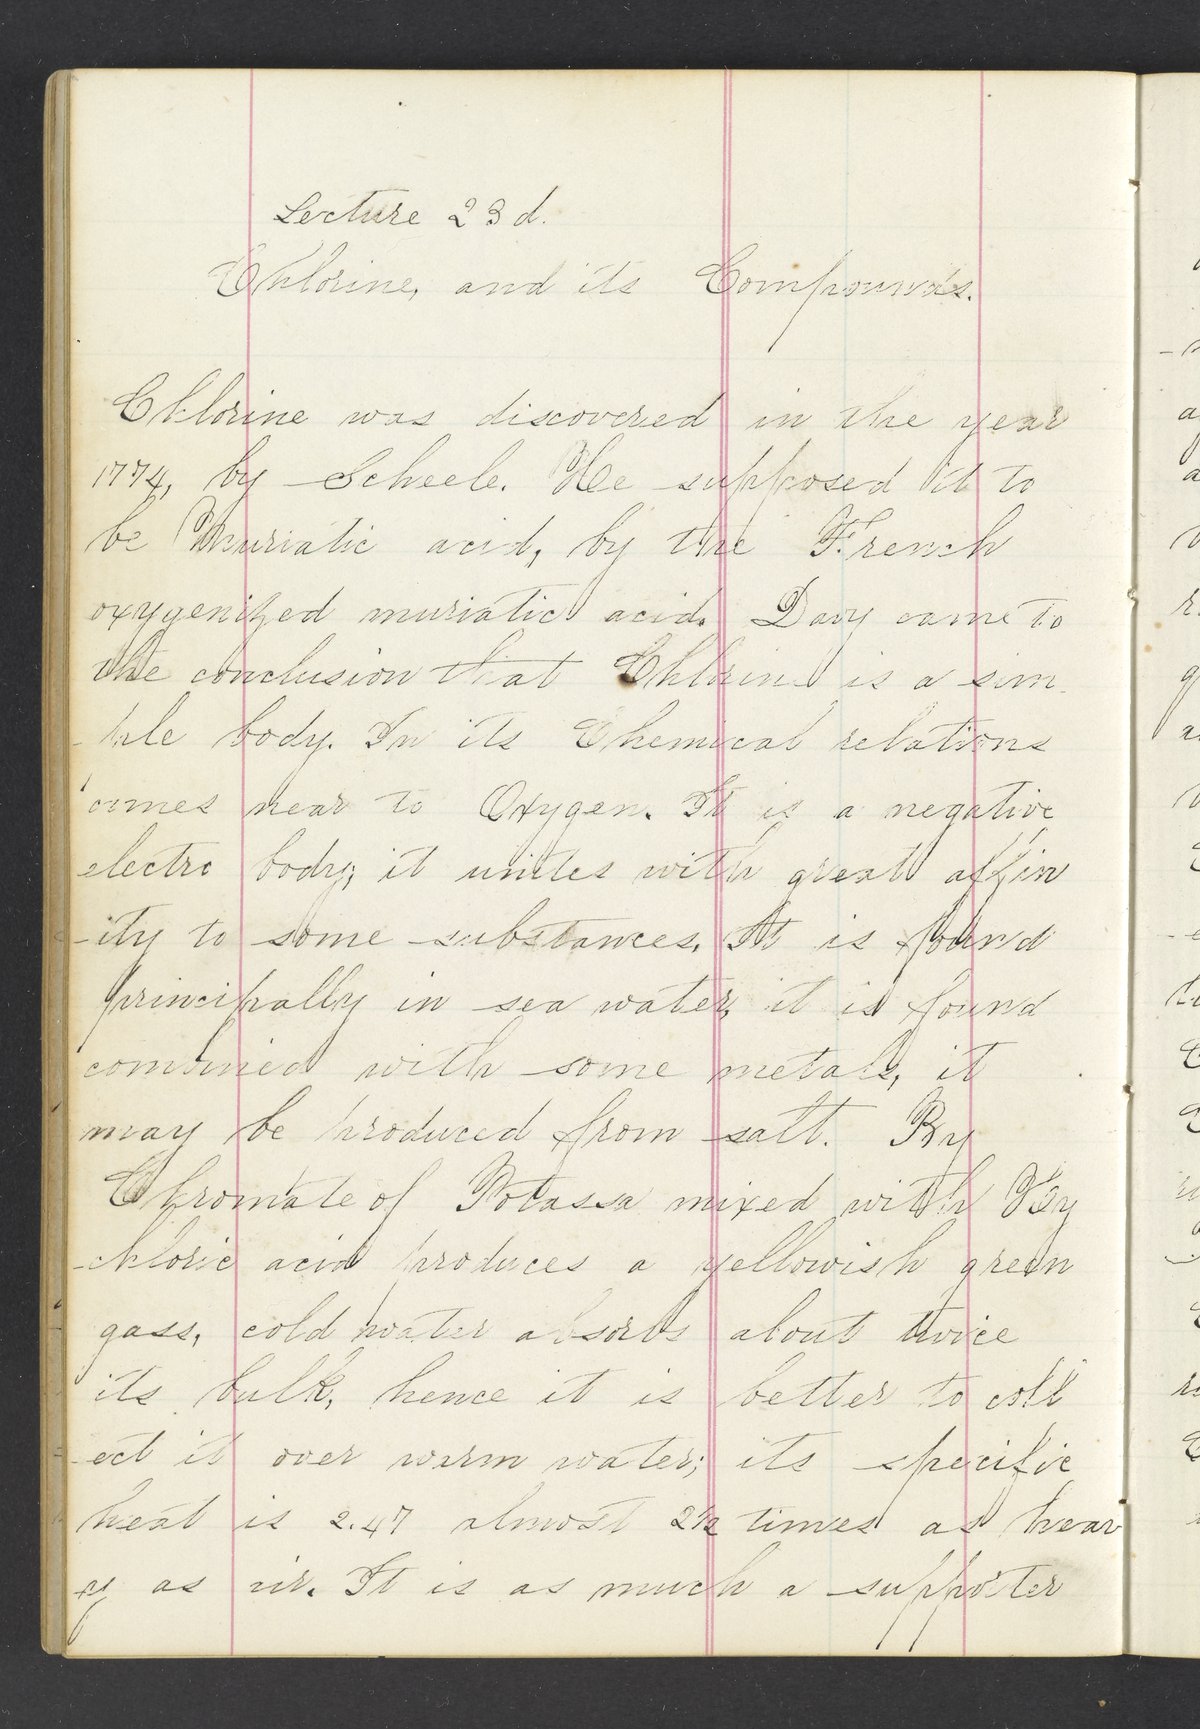 Lecture 23d.
Chlorine, and its Compounds.
Chlorine was discovered in the year
1774, by Scheele. He supposed it to
be Muriatic acid, by the French
oxygenized muriatic acid. Davy came to
the conclusion that Chlorine is a sim
-ple body. In its Chemical relations
comes near to Oxygen. It is a negative
electro body; it unites with great affin
-ity to some substances. It is found
principally in sea water, it is found
combined with some metals, it
may be produced from salt. By
Chromate of Potassa mixed with Hy
-chloric acid produces a yellowish green
gass, cold water absorbs about twice
its bulk, hence it is better to coll
-ect it over warm water; its specific
heat is 2.47 almost 2½ times as heav
y as air. It is as much a supporter